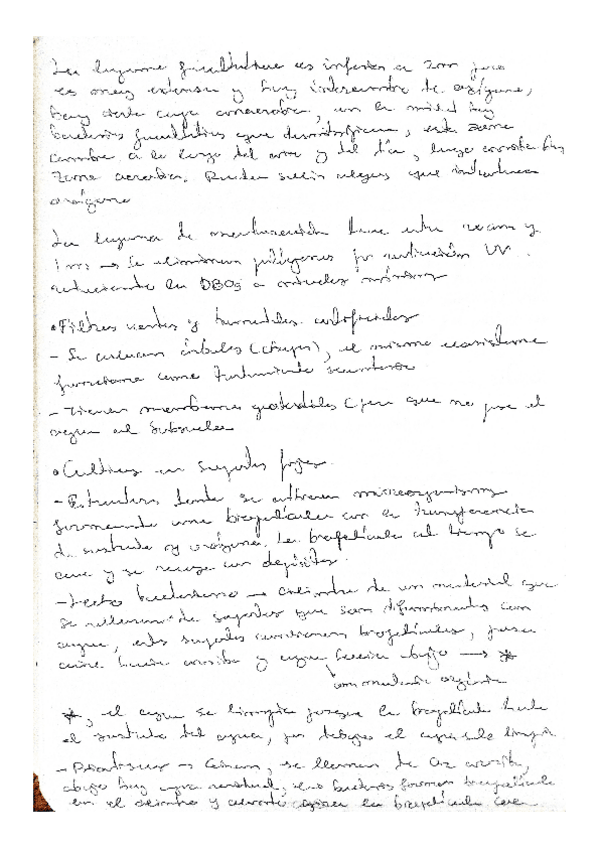 La laguna facultativa es inferior a 2m pero
es muy extensa y hay intercambio de oxígeno,
hay cierta capa anaerobia, en la mitad hay
bacterias facultativas que desnitrifican, esta zona
cambia a lo largo del año y del día, luego arriba hay
zona aerobia. Pueden salir algas que introducen
oxígeno
La laguna de maduración tiene entre y
1m → Se eliminan patógenos por radiación UV
reduciendo la DBO5 a niveles mínimos
• Filtros verdes y humedales artificiales
- Se colocan árboles (chopos), el mismo ecosistema
funciona como tratamiento secundario
- Tienen membrana geotextiles (para que no pase el
agua al subsuelo
• Cultivos en soportes fijos
- Estructura donde se cultivan microorganismos
formando una biopelícula con la transferencia
de sustrato y oxígeno. La biopelícula al tiempo se
cae y se recoge en depósitos.
- Lecho bacteriano → de un material que
se rellenan de soportes que son difuminados con
agua, estos soportes contienen biopelículas, pasa
aire hacia arriba y agua hacia abajo → *
con materia orgánica
*, el agua se limpia porque la biopelícula
el sustrato del agua, por debajo el agua sale limpia
- → Giran, se llaman de arriba,
abajo hay agua residual, las bacterias forman biopelícula
en el y cuando la biopelícula cae